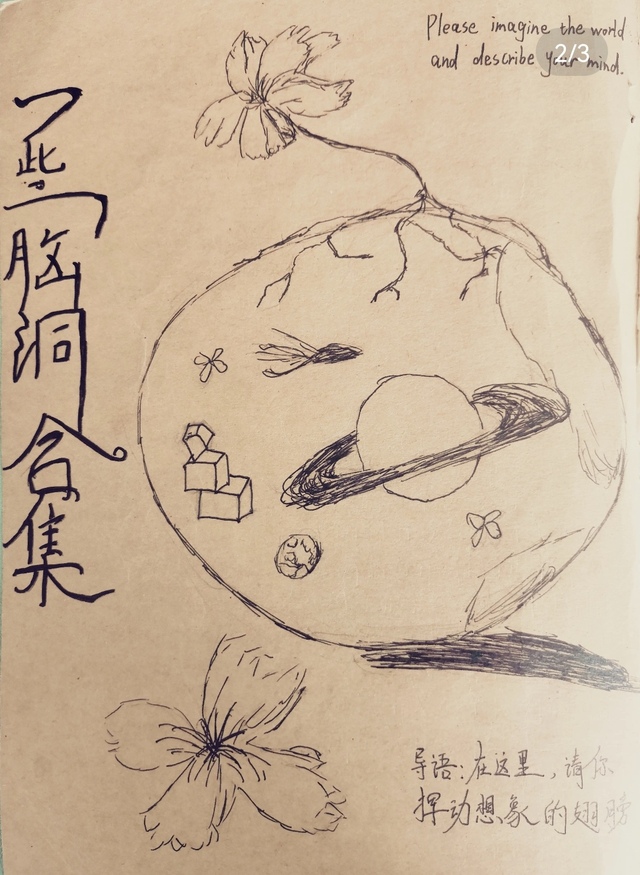 Please imagine the world
and describe your mind.
2/3
一些脑洞合集
导语:在这里,请你
挥动想象的翅膀